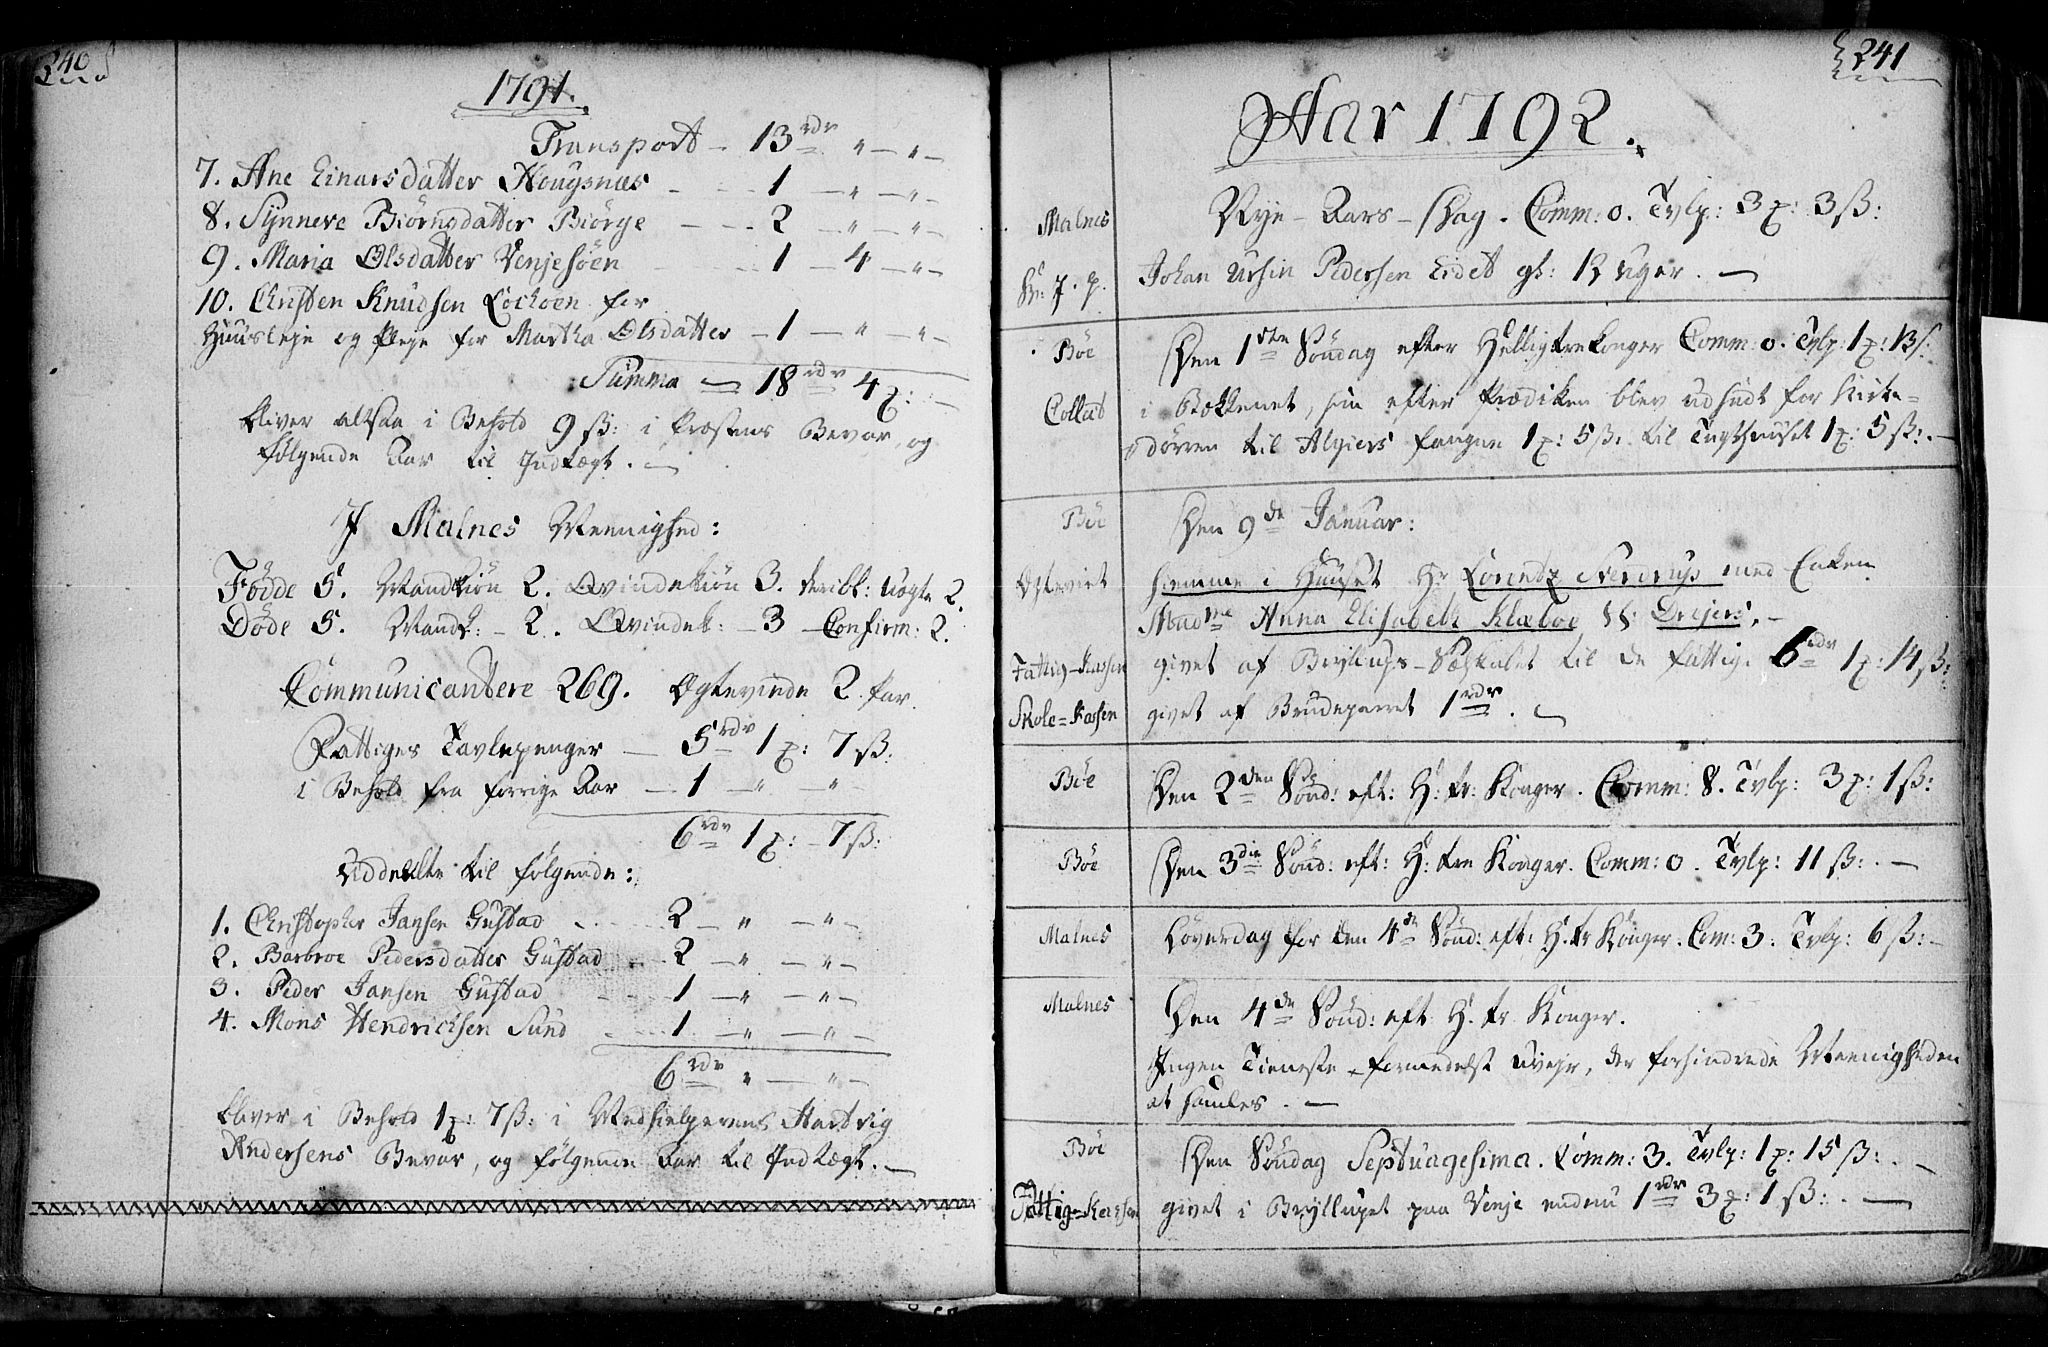 240
1791.
Transport — 13 rdr „ — „ —
7. Ane Einarsdatter Hougsnæs — 1 — „ — „ —
8. Synneve Biörnsdatter Biörge — 2 — „ — „ —
9. Maria Olsdatter Venjesöen — 1 — 4 — „ —
10. Christen Knudsen Lochøen for
Huusleje og Pleje for Martha Olsdatter — 1 — „ — „ —
Summa — 18 rdr 4 ꝑ: —
bliver altsaa i Behold 9 ß: i Præstens Bevar, og
følgende Aar til Indtægt. —
I Malnes Meenighed:
Födde 5. Mandkiön 2. Qvindekiön 3. deribl: uægte 2.
Döde 5. Mandk: — 2. Qvindek: — 3 — Confirm: 2.
Communicantere 269. Ægtevinde 2 Par.
Fattiges Tavlepenger — 5 rdr 1 ꝑ: 7 ß:
i Behold fra forrige Aar — 1 „ „
6 rdr 1 ꝑ: — 7 ß:
Uddeelte til følgende:
1. Christopher Jansen Gustad — 2 — „ — „ —
2. Barbroe Pedersdatter Gustad — 2 — „ — „ —
3. Peder Jansen Gustad — 1 — „ — „ —
4. Mons Hendricksen Sund — 1 — „ — „ —
6 rdr „ — „ —
bliver i Behold 1 ꝑ: 7 ß: i Medhielperens Hartvig
Andersens Bevar, og følgende Aar til Indtægt. —
241
Aar 1792.
Malnes
Nye-Aars-Dag. Comm: 0. Tvlp: 3 ꝑ: 3 ß:
J. p.
Johan Ursin Pedersen Eidet gl: 13 Uger. —
Böe
Den 1ste Söndag efter Helligtrekonger Comm: 0. Tvlp: 1 ꝑ: 13 ß.
Collect
i Bekkenet, som efter Prædiken blev udsadt for Kirke-
dören til Algiers fangne 1 ꝑ: 5 ß: til Tugthuuset 1 ꝑ: 5 ß: —
Böe
Den 9de Januar:
Ægteviet
hiemme i Huuset Hr Lorentz med Enken
Madme Anna Elisabeth Klæboe Sl: Drejers. —
Fattig-Kassen
givet af Bryllups-Selskabet til de fattige 6 rdr 1 ꝑ: 14 ß:
Skole-Kassen
givet af Brudeparret 1 rdr. —
Böe
Den 2den Sönd: eft: H: tr: Konger. Comm: 8. Tvlp: 3 ꝑ: 1 ß:
Böe
Den 3die Sönd: eft: H: tre Konger. Comm: 0. Tvlp: 11 ß: —
Malnes
Löverdag for den 4de Sönd: eft: H. tr Konger. Com: 3. Tvlp: 6 ß: —
Malnes
Den 4de Sönd: eft H. tr Konger.
Ingen Tieneste formedelst Uvejr, der forhindrede Meenigheden
at samles. —
Böe
Den Söndag Septuagesima. Comm: 3. Tvlp: 1 ꝑ: 15 ß: —
Fattig-Kassen
givet i Bryllupet paa Venje endnu 1 rdr 3 ꝑ: 1 ß: —